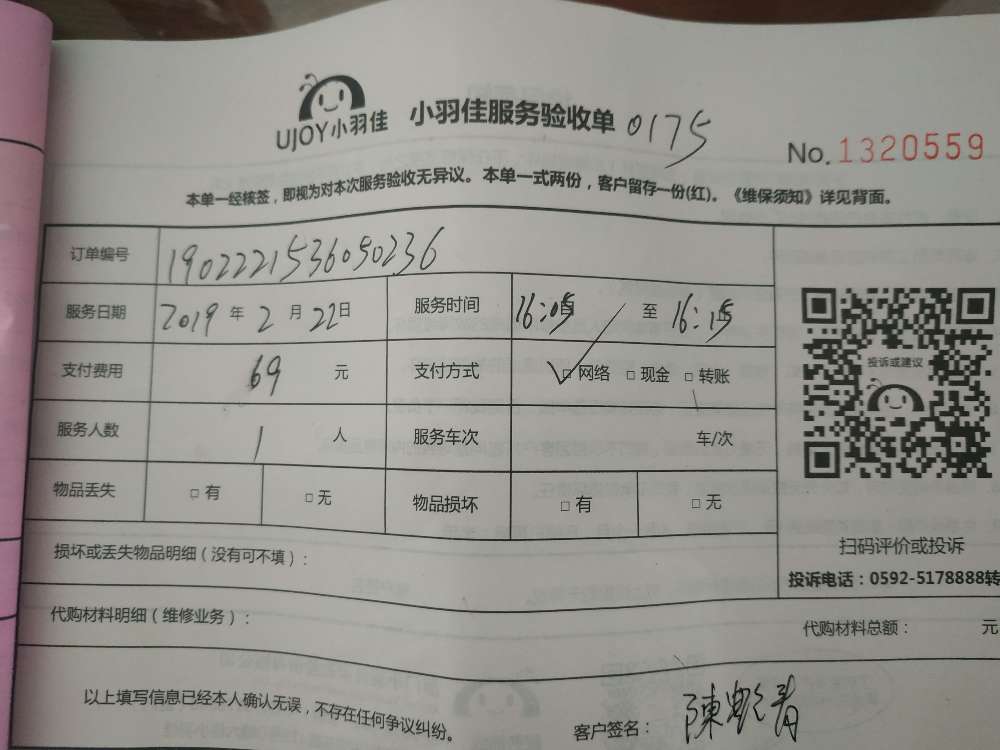 UJOY小羽佳 小羽佳服务验收单 0175
No. 1320559
本单一经核签，即视为对本次服务验收无异议。本单一式两份，客户留存一份(红)。《维保须知》详见背面。
订单编号 1902221536050236
服务日期 2019 年 2 月 22 日 服务时间 16:05 至 16:15
投诉或建议
支付费用 69 元 支付方式 ✓□ 网络 □ 现金 □ 转账
服务人数 1 人 服务车次 车/次
物品丢失 □ 有 □ 无 物品损坏 □ 有 □ 无
扫码评价或投诉
投诉电话：0592-5178888转
损坏或丢失物品明细（没有可不填）：
代购材料明细（维修业务）： 代购材料总额： 元
以上填写信息已经本人确认无误，不存在任何争议纠纷。 客户签名：